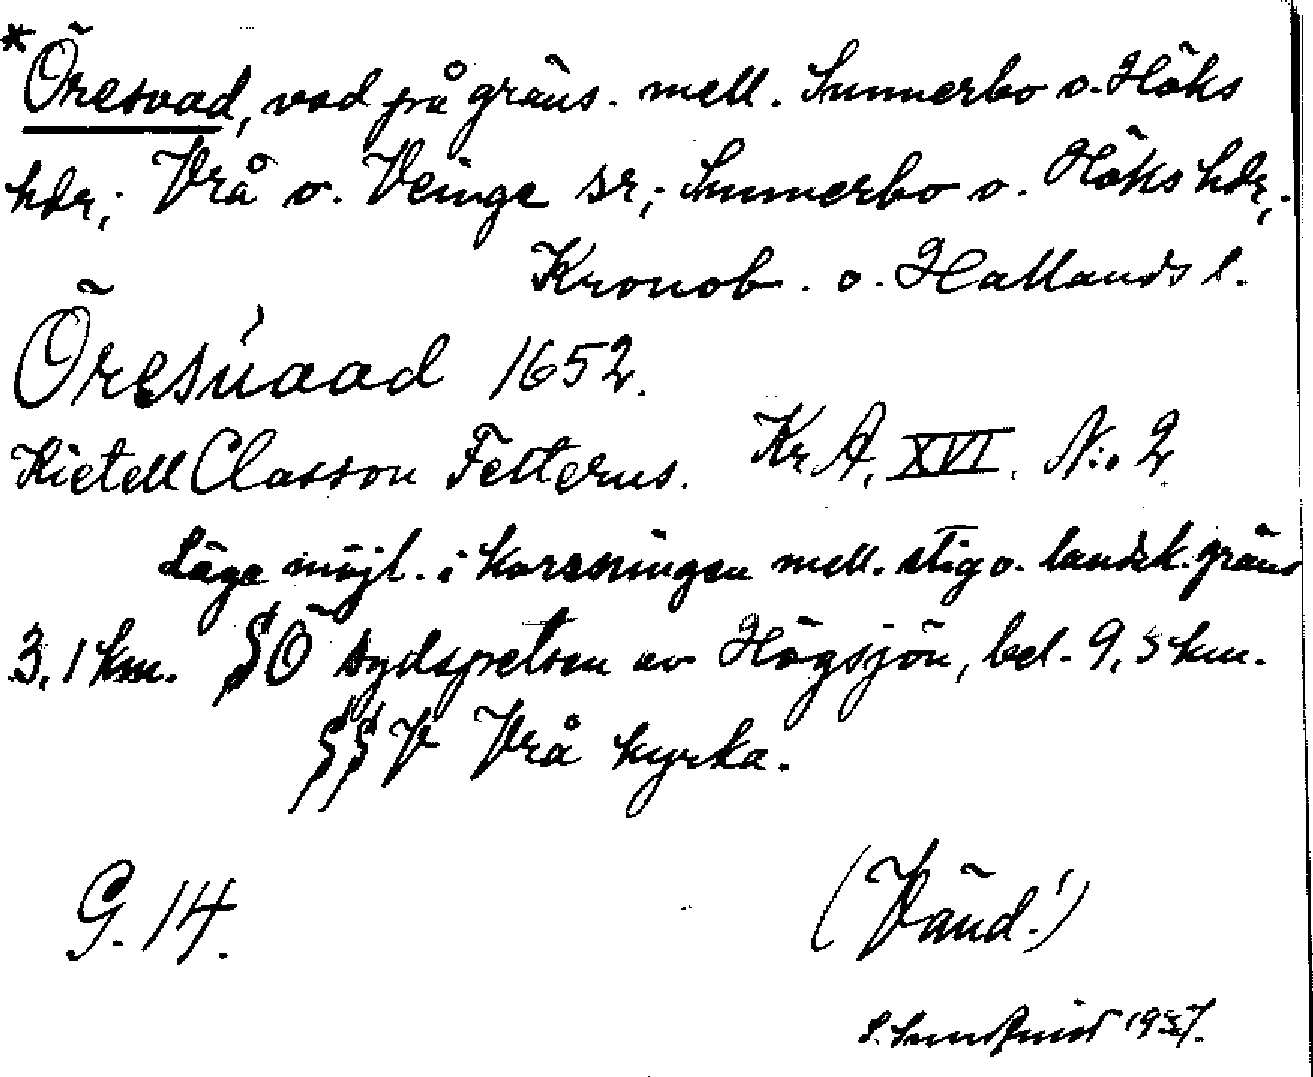 *Öresvad, vad på gräns. mell. Sunnerbo o. Höks
hdr; Vrå o. Veinge sr; Sunnerbo o. Höks hdr;
Kronob. o. Hallands l.
Öresúaad 1652.
Kietell Classon Felterus. Kr A. XVI. N:o 2
Läge möjl. i korsningen mell. stig o. landsk. gräns
3,1 km. SÖ sydspetsen av Högsjön, bel. 9,5 km.
SSV Vrå kyrka.
G. 14.
(Vänd!)
S. Sundquist